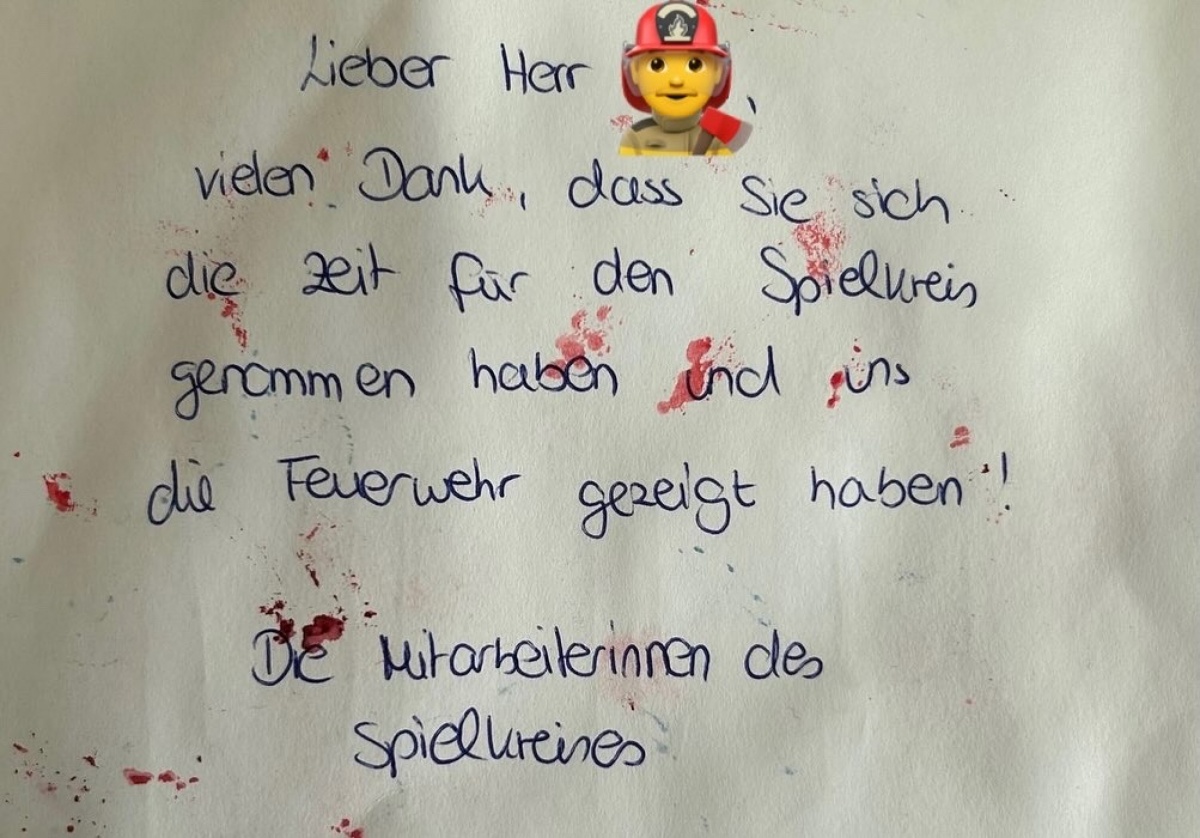 Lieber Herr ,
vielen Dank, dass Sie sich
die Zeit für den Spielkreis
genommen haben und uns
die Feuerwehr gezeigt haben!
Die Mitarbeiterinnen des
Spielkreises